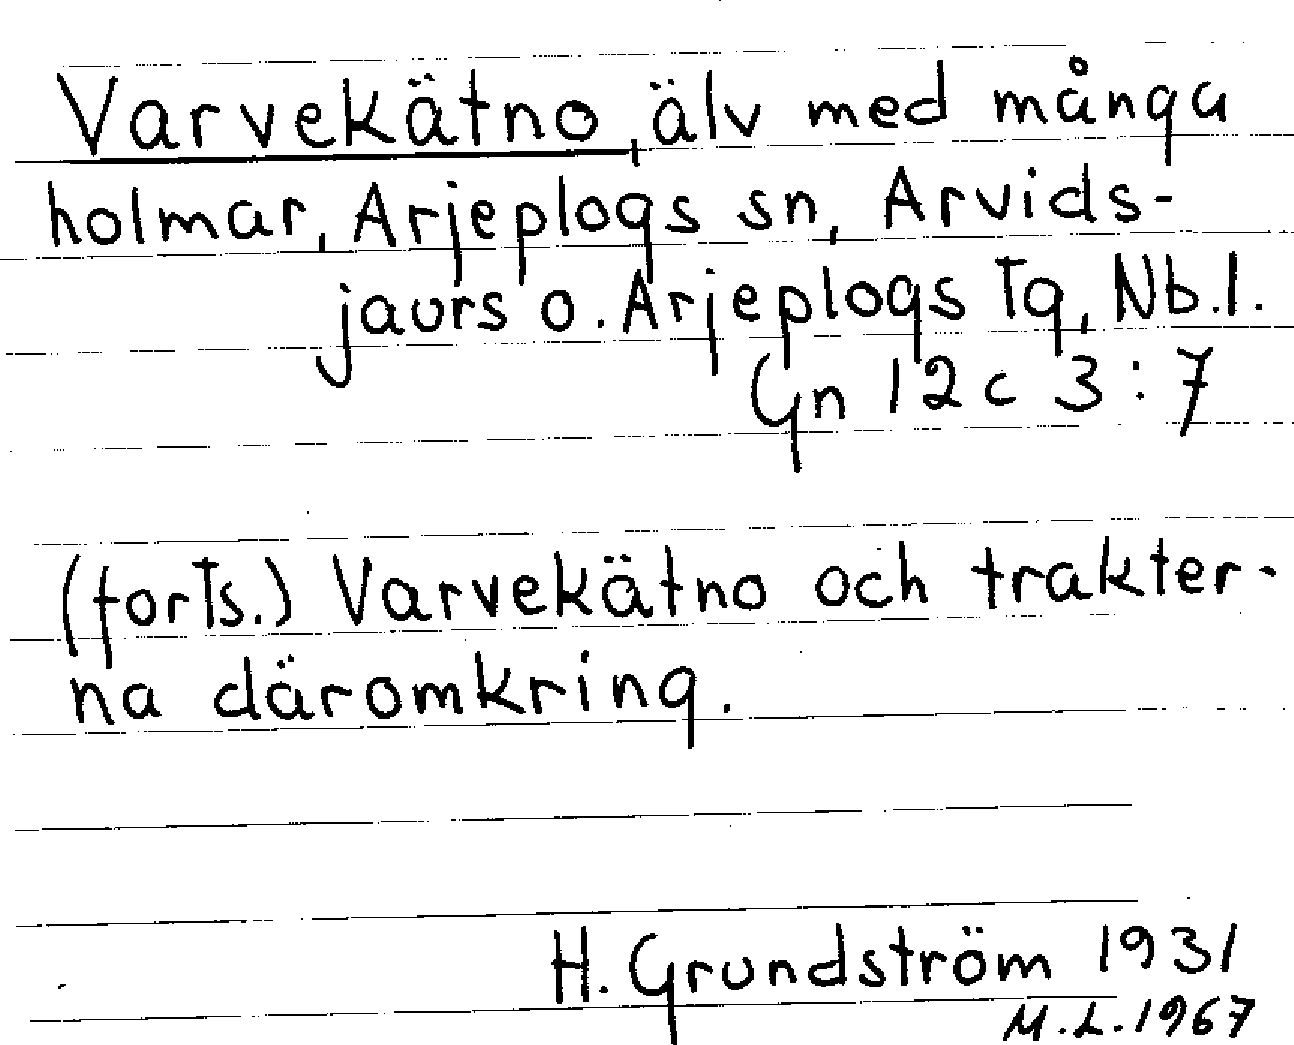 Varvekätno, älv med många
holmar, Arjeplogs sn, Arvids-
jaurs o. Arjeplogs Tg, Nb.l.
Gn 12 c 3:7
(forts.) Varvekätno och trakter-
na däromkring.
H. Grundström 1931
M.L. 1967